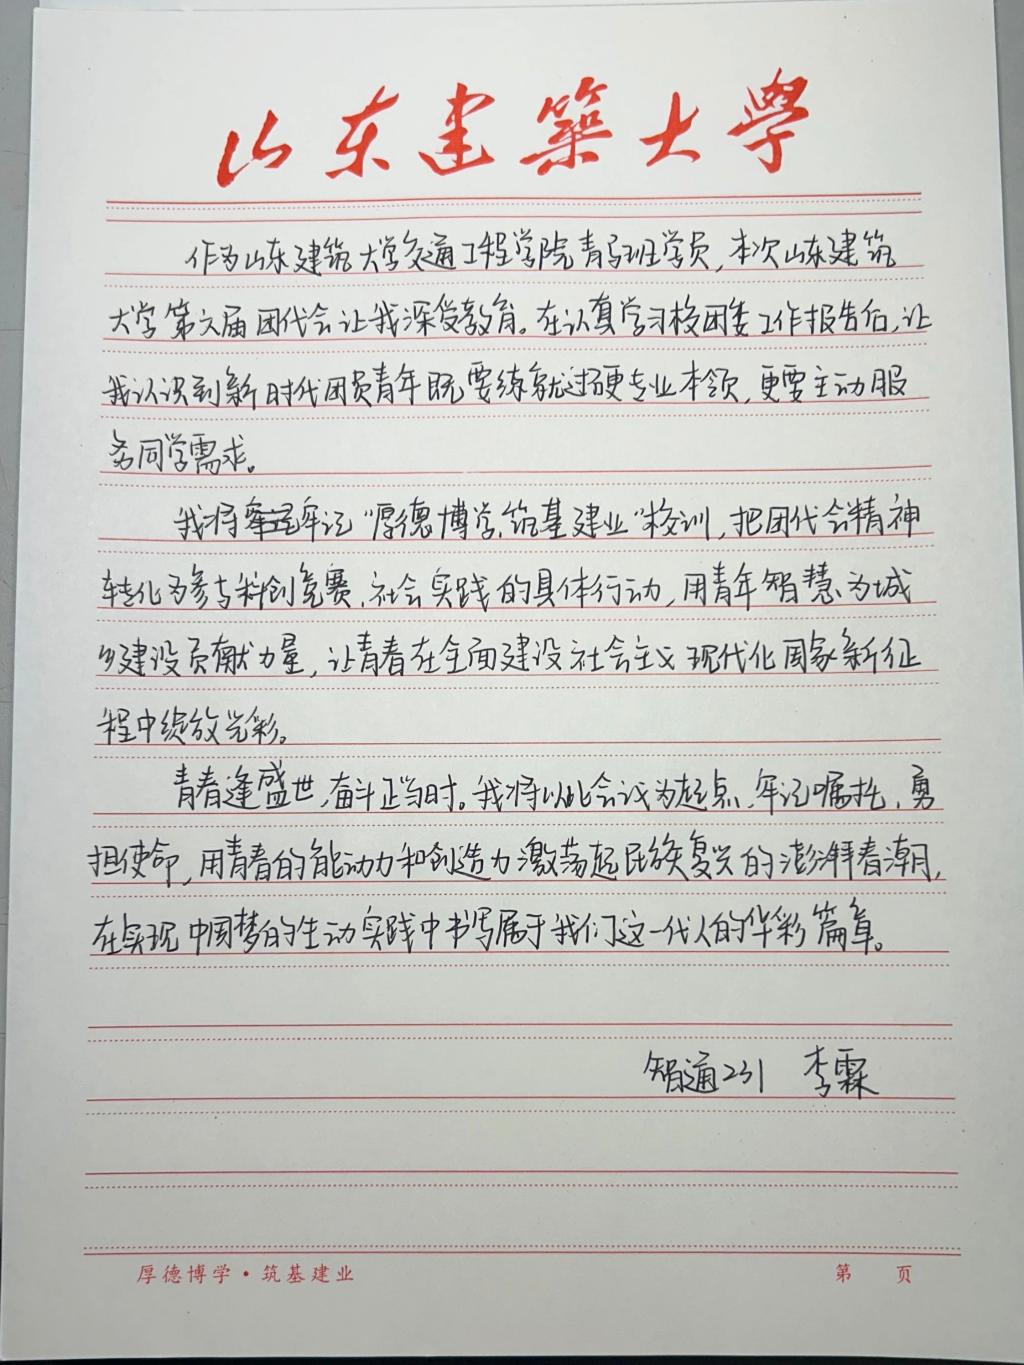 山东建筑大學
作为山东建筑大学交通工程学院青马班学员,本次山东建筑
大学第六届团代会让我深受教育。在认真学习校团委工作报告后,让
我认识到新时代团员青年既要练就过硬专业本领,更要主动服
务同学需求。
我将牢记"厚德博学、筑基建业"校训,把团代会精神
转化为参与科创竞赛、社会实践的具体行动,用青年智慧为城
乡建设贡献力量,让青春在全面建设社会主义现代化国家新征
程中绽放光彩。
青春逢盛世,奋斗正当时。我将以此会议为起点,牢记嘱托,勇
担使命,用青春的能动力和创造力激荡起民族复兴的澎湃春潮,
在实现中国梦的生动实践中书写属于我们这一代人的华彩篇章。
智通231 李霖
厚德博学·筑基建业 第 页